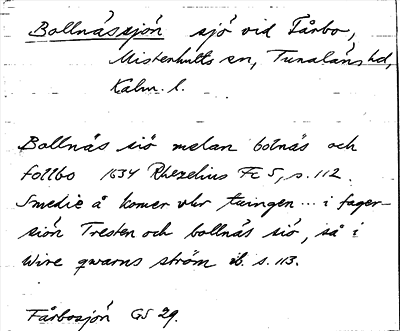 Bollnässjön sjö vid Fårbo,
Misterhults sn, Tunaläns hd,
Kalm. l.
Bollnäs siö melan bolnäs och
follbo 1634 Rhezelius Fc 5, s. 112.
Smedie å komer vhr tuingen ... i fager-
siön Tresten och bollnäs siö, så i
Wire qwarns ström ib. s. 113.
Fårbosjön GS 29.